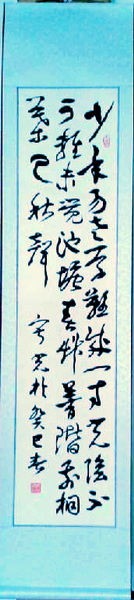 少年易老学难成一寸光阴不
可轻未觉池塘春草梦阶前梧
叶已秋声
于癸巳春